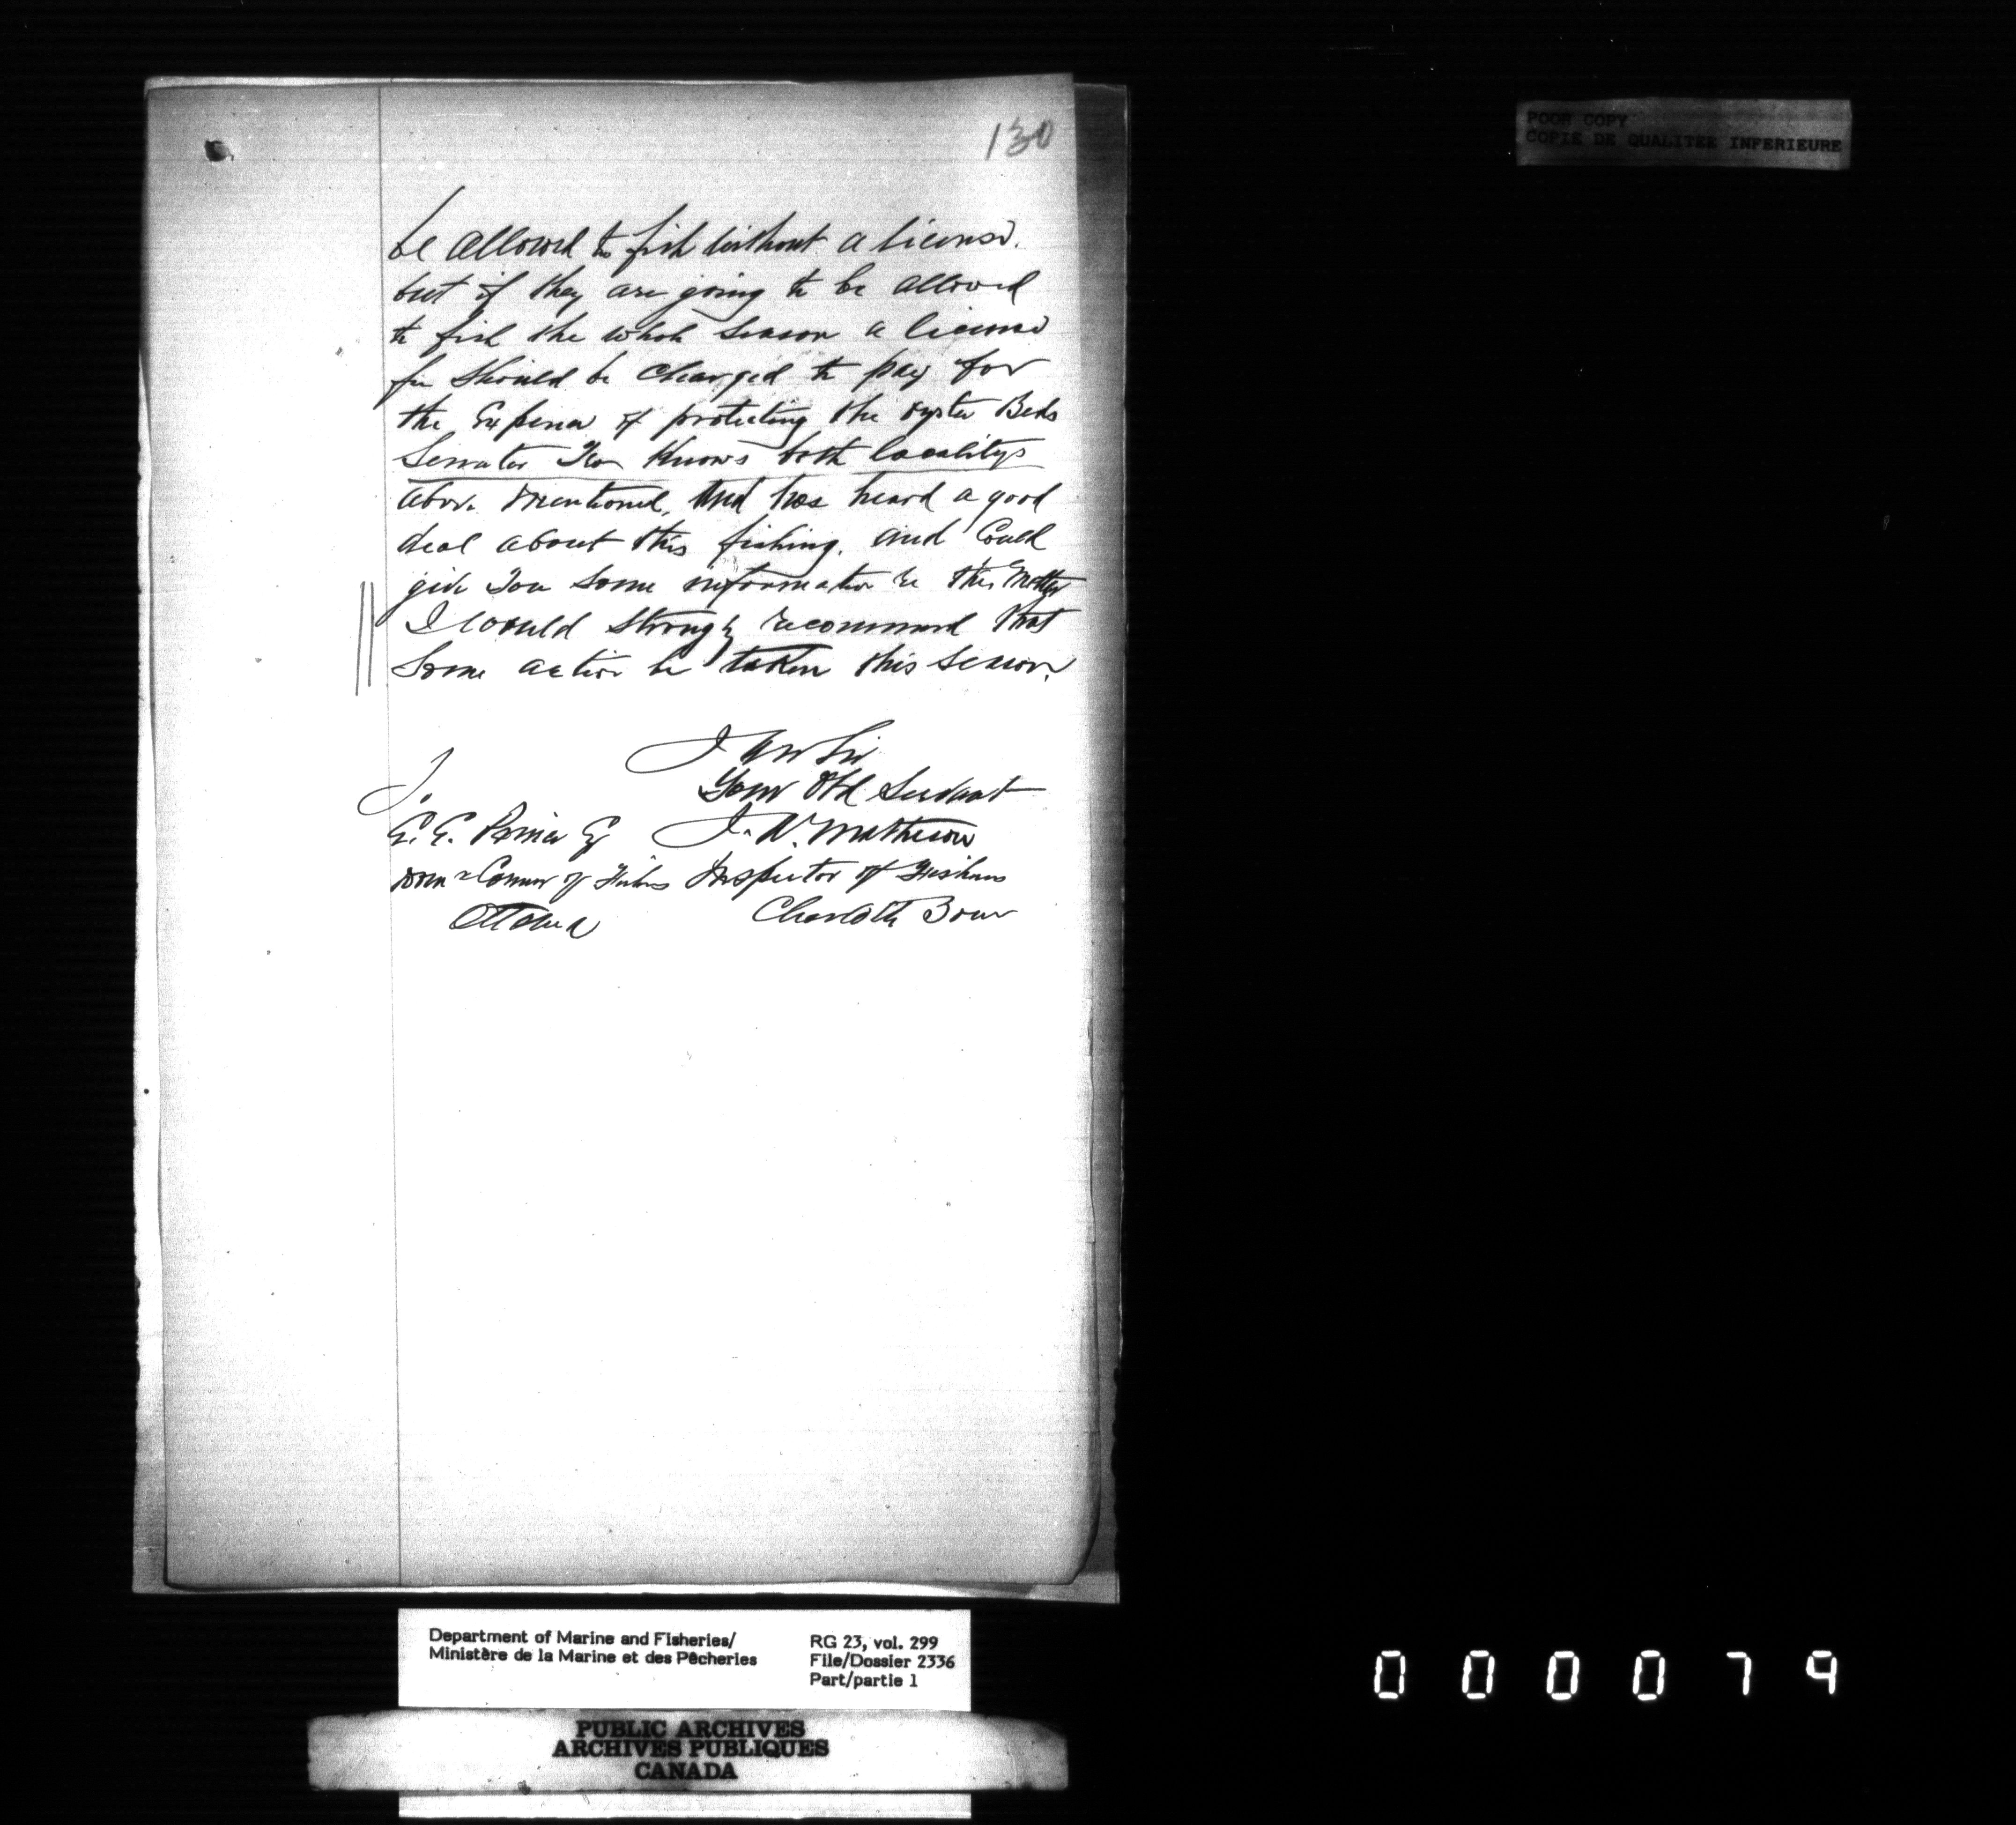 130
POOR COPY
COPIE DE QUALITEE INFERIEURE
be allowed to fish without a license.
but if they are going to be allowed
to fish the whole season a license
fee should be charged to pay for
the Expense of protecting the oyster Beds
Senator Yeo Knows both localitys
above mentioned, and has heard a good
deal about this fishing. and Could
give You some information re this Matter
I would strongly recommend that
some action be taken this season.
I Am Sir
Your Obd Servant
To
E. E. Prince Esq J. A. Matheson
Dom Commr of Fisheries Inspector of Fisheries
Ottawa Charlotte Town
Department of Marine and Fisheries/
Ministère de la Marine et des Pêcheries
RG 23, vol. 299
File/Dossier 2336
Part/partie 1
PUBLIC ARCHIVES
ARCHIVES PUBLIQUES
CANADA
000079